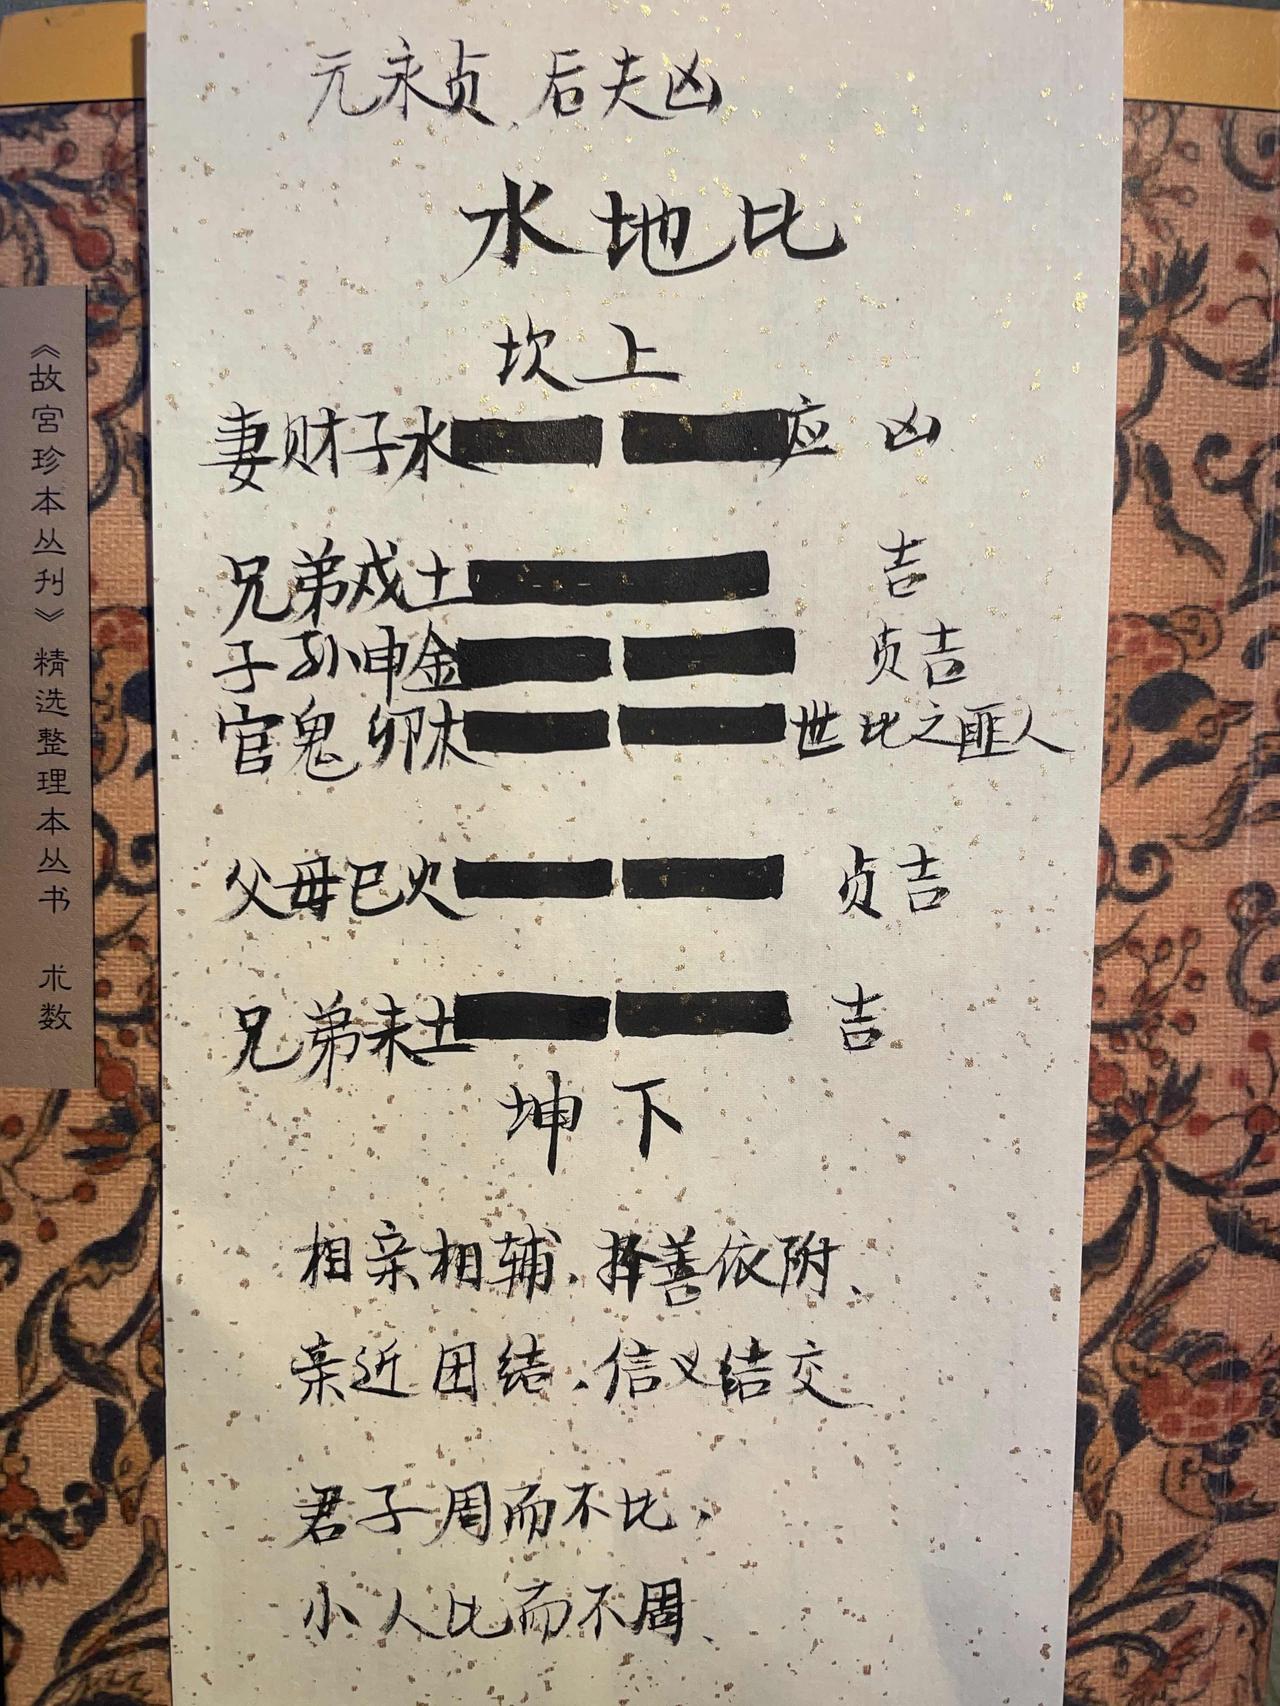 元永贞、后夫凶
水地比
坎上
妻财子水 应 凶
兄弟戌土 吉
子孙申金 贞吉
官鬼卯木 世 比之匪人
父母巳火 贞吉
兄弟未土 吉
坤下
相亲相辅.择善依附、
亲近团结.信义结交
君子周而不比,
小人比而不周、
《故宫珍本丛刊》精选整理本丛书 术数